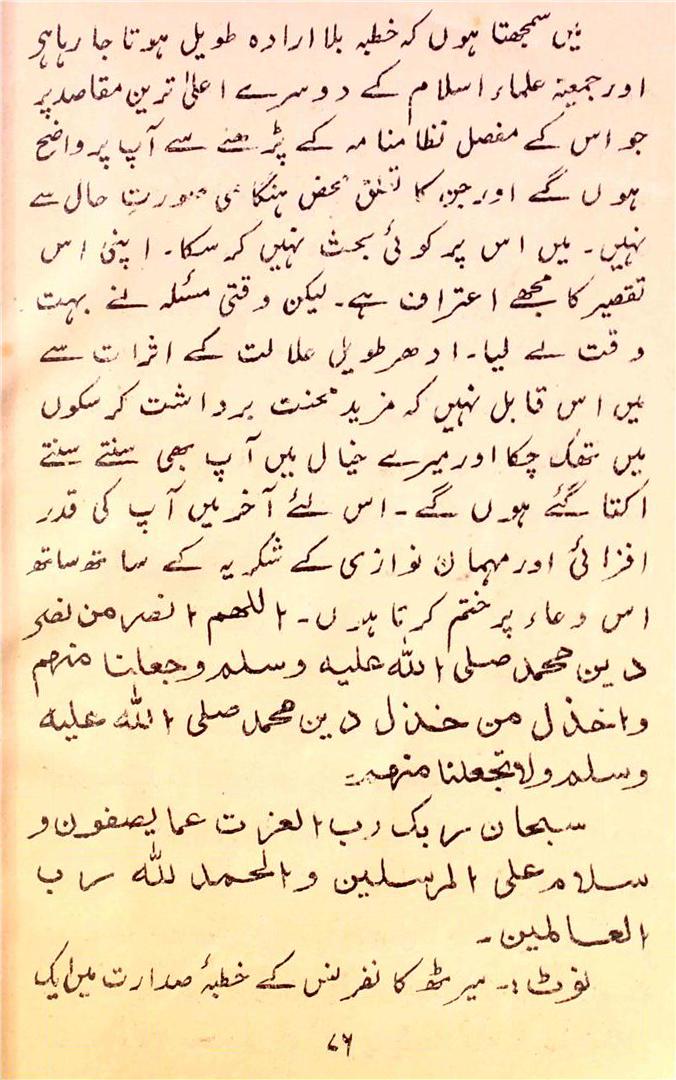 میں سمجھتا ہوں کہ خطبہ بلا ارادہ طویل ہوتا جا رہا ہے
اور جمعیۃ علماء اسلام کے دوسرے اعلیٰ ترین مقاصد پر
جو اس کے مفصل نظامنامہ کے پڑھنے سے آپ پر واضح
ہوں گے اور جن کا تعلق محض ہنگامی صورتِ حال سے
نہیں۔ میں اس پر کوئی بحث نہیں کر سکا۔ اپنی اس
تقصیر کا مجھے اعتراف ہے۔ لیکن وقتی مسئلہ نے بہت
وقت لے لیا۔ ادھر طویل علالت کے اثرات سے
میں اس قابل نہیں کہ مزید محنت برداشت کر سکوں
میں تھک چکا اور میرے خیال میں آپ بھی سنتے سنتے
اکتا گئے ہوں گے۔ اس لئے آخر میں آپ کی قدر
افزائی اور مہمان نوازی کے شکریہ کے ساتھ ساتھ
اس دعاء پر ختم کرتا ہوں۔ اللھم انصر من نصر
دین محمد صلی اللہ علیہ وسلم وجعلنا منہم
واخذل من خذل دین محمد صلی اللہ علیہ
وسلم ولا تجعلنا منہم۔
سبحان ربک رب العزت عما یصفون و
سلام علی المرسلین والحمد للہ رب
العالمین۔
نوٹ:۔ میرٹھ کانفرنس کے خطبۂ صدارت میں ایک
۷۶